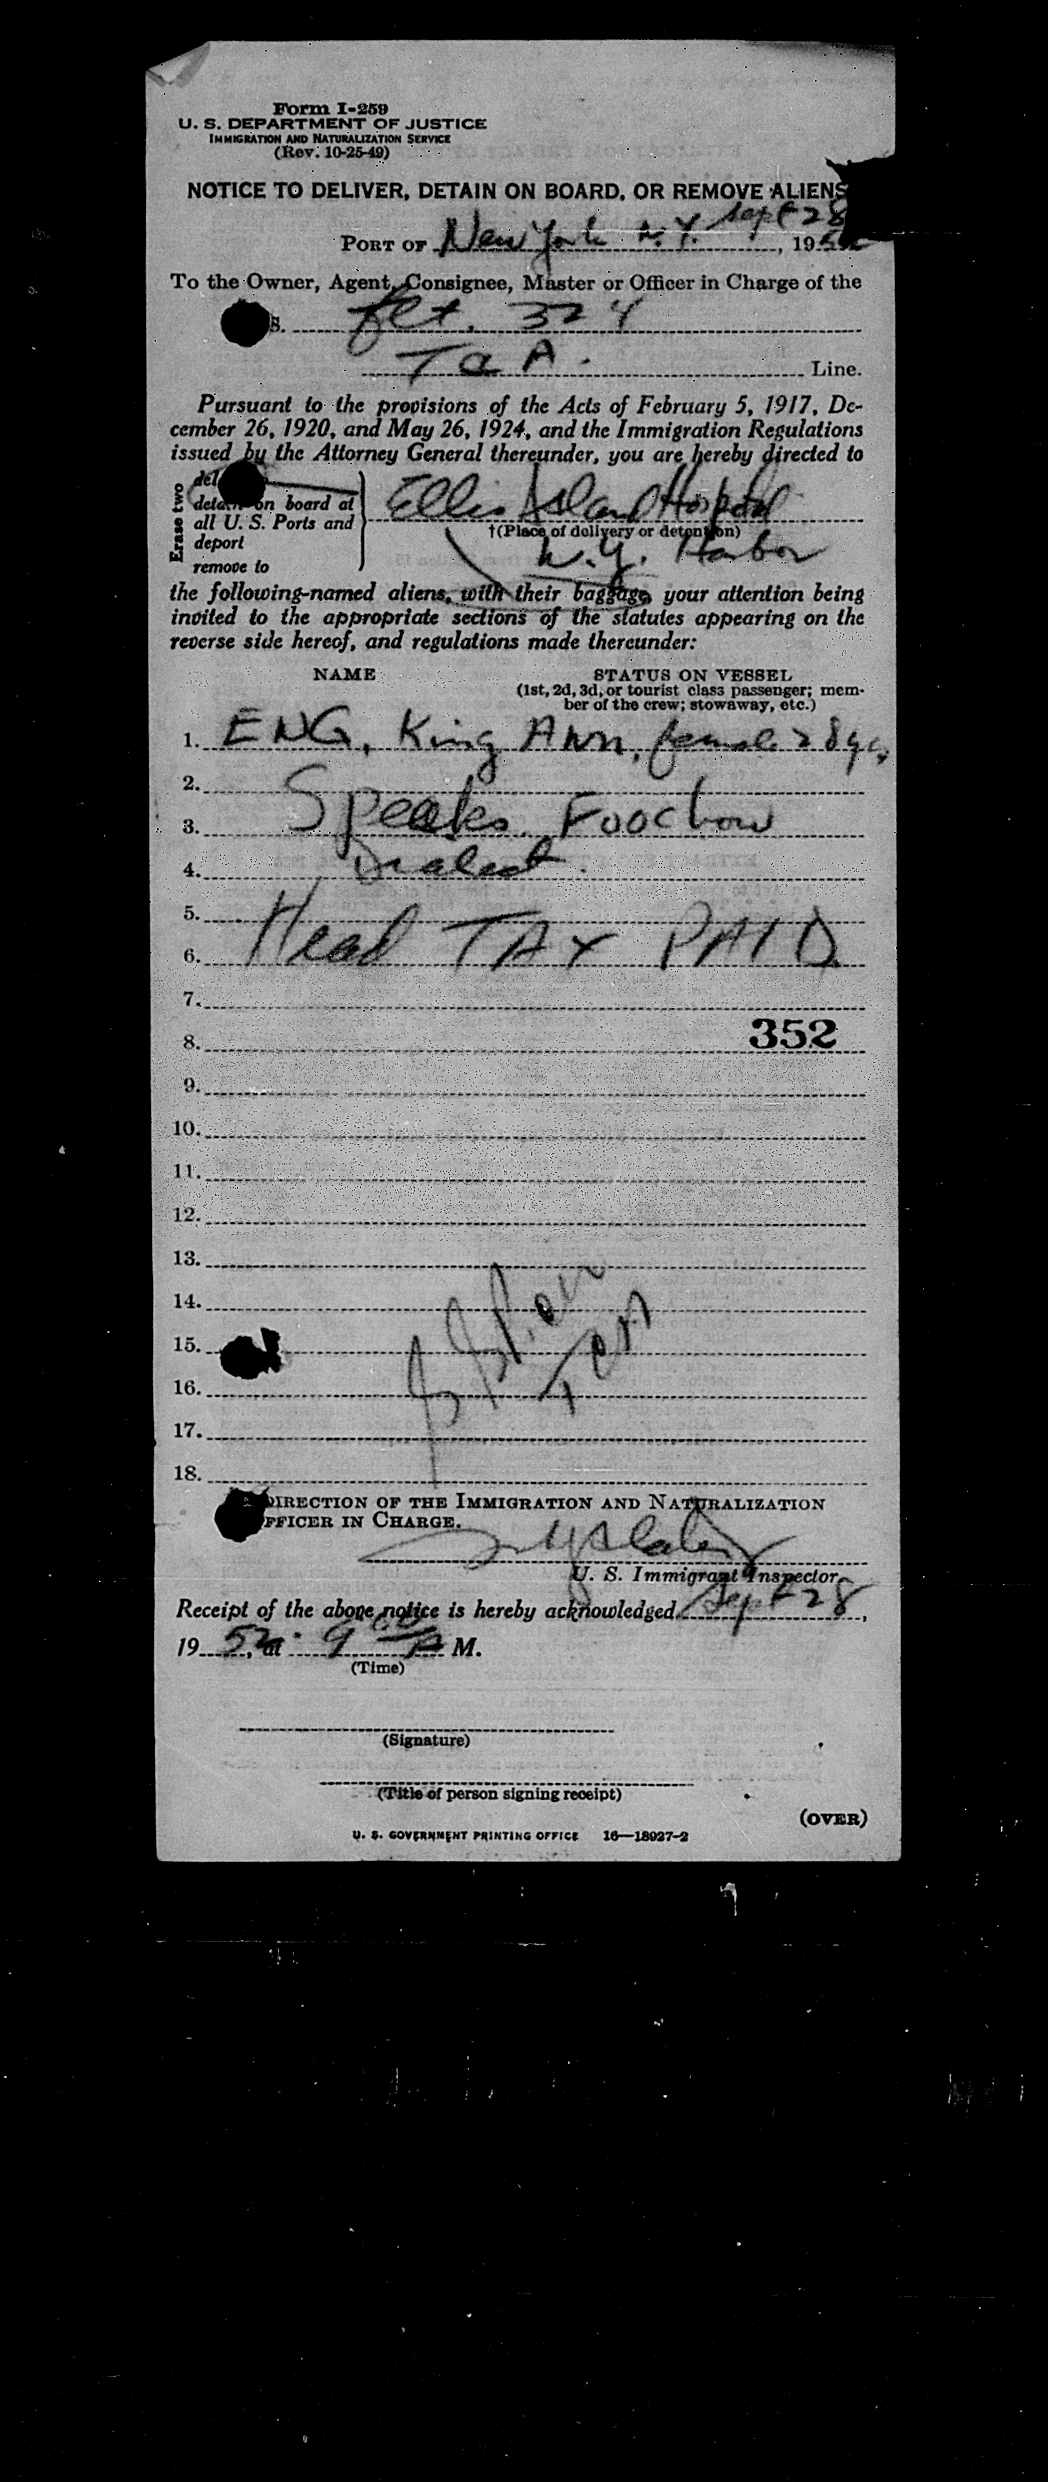 Form I-259
U. S. DEPARTMENT OF JUSTICE
IMMIGRATION AND NATURALIZATION SERVICE
(Rev. 10-25-49)
NOTICE TO DELIVER, DETAIN ON BOARD, OR REMOVE ALIENS
PORT OF New York N.Y. Sept 28, 195
To the Owner, Agent, Consignee, Master or Officer in Charge of the
S. flt. 324
Line.
Pursuant to the provisions of the Acts of February 5, 1917, De-
cember 26, 1920, and May 26, 1924, and the Immigration Regulations
issued by the Attorney General thereunder, you are hereby directed to
Erase two
del
detain on board at
all U. S. Ports and
deport
remove to
Ellis Island Hospital
†(Place of delivery or detention)
N.Y. Harbor
the following-named aliens, with their baggage, your attention being
invited to the appropriate sections of the statutes appearing on the
reverse side hereof, and regulations made thereunder:
NAME
STATUS ON VESSEL
(1st, 2d, 3d, or tourist class passenger; mem-
ber of the crew; stowaway, etc.)
1. ENG, King Ann, female 28 yrs
2.
3. Speaks Foochow
4. Dialect.
5.
6. Head TAX PAID
7.
352
8.
9.
10.
11.
12.
13.
14.
15.
16.
17.
18.
DIRECTION OF THE IMMIGRATION AND NATURALIZATION
FFICER IN CHARGE.
U. S. Immigrant Inspector.
Receipt of the above notice is hereby acknowledged Sept 28,
1952, at 9 00 A M.
(Time)
(Signature)
(Title of person signing receipt)
(OVER)
U. S. GOVERNMENT PRINTING OFFICE 16—18927-2